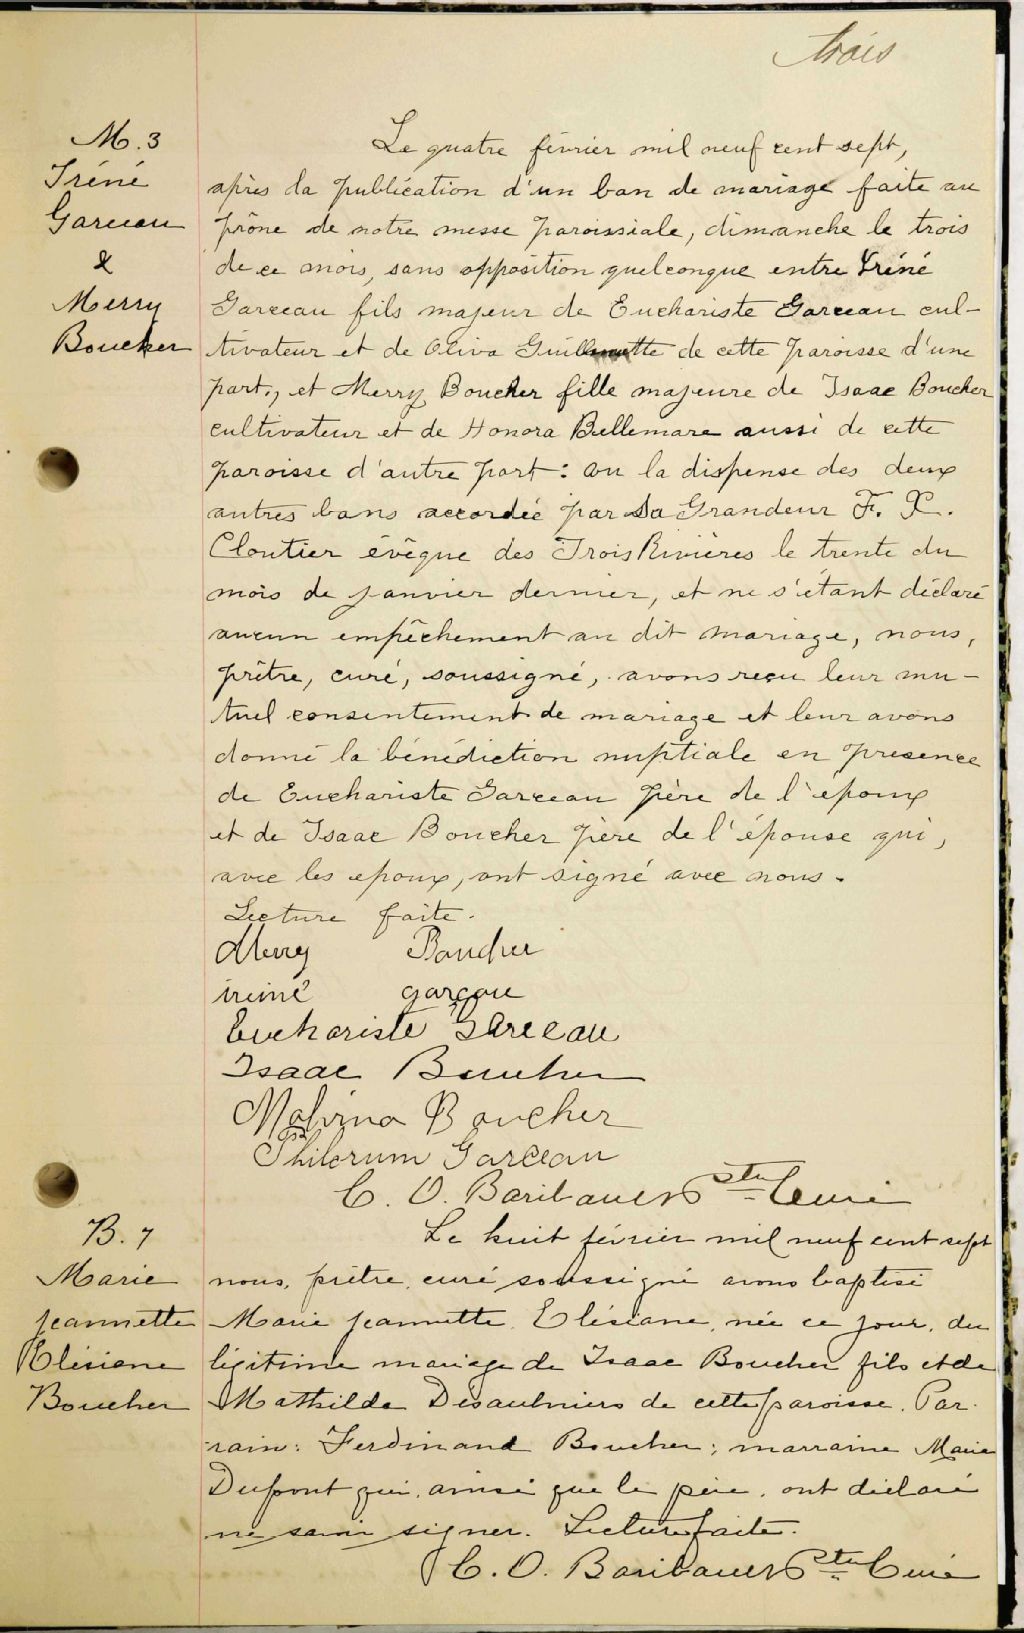 trois
M. 3
Iréné
Garceau
&
Merry
Boucher
Le quatre février mil neuf cent sept,
après la publication d'un ban de mariage faite au
prône de notre messe paroissiale, dimanche le trois
de ce mois, sans opposition quelconque entre Iréné
Garceau fils majeur de Euchariste Garceau cul-
tivateur et de Oliva Guillemette de cette paroisse d'une
part, et Merry Boucher fille majeure de Isaac Boucher
cultivateur et de Honora Bellemare aussi de cette
paroisse d'autre part: vu la dispense des deux
autres bans accordée par Sa Grandeur F. X.
Cloutier évêque des Trois Rivières le trente du
mois de janvier dernier, et ne s'étant déclaré
aucun empêchement au dit mariage, nous,
prêtre, curé, soussigné, avons reçu leur mu-
tuel consentement de mariage et leur avons
donné la bénédiction nuptiale en presence
de Euchariste Garceau père de l'époux
et de Isaac Boucher père de l'épouse qui,
avec les epoux, ont signé avec nous.
Lecture faite.
Merry Boucher
iréné garçau
Euchariste Garceau
Isaac Boucher
Malvina Boucher
Philorum Garceau
C. O. Baribault Ptre Curé
B. 7
Marie
Jeannette
Elésiane
Boucher
Le huit février mil neuf cent sept
nous, prêtre, curé soussigné avons baptisé
Marie Jeannette Elésiane, née ce jour, du
légitime mariage de Isaac Boucher fils et de
Mathilda Désaulniers de cette paroisse. Par-
rain: Ferdinand Boucher; marraine Marie
Dupont qui, ainsi que le père, ont déclaré
ne savoir signer. Lecture faite.
C. O. Baribault Ptre Curé